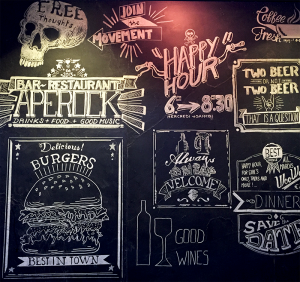 FREE
Thoughts
JOIN
the
MOVEMENT
"HAPPY
HOUR"
6 → 8:30
MERCREDI
Coffee
Fresh
BAR - RESTAURANT
APEROCK
DRINKS + FOOD + GOOD MUSIC
TWO BEER
OR NOT
TWO BEER
THAT IS A QUESTION
Delicious!
BURGERS
BEST IN TOWN
Always
WELCOME
GOOD
WINES
BEST
HAPPY HOUR,
DINNER
SAVE
the
DATE